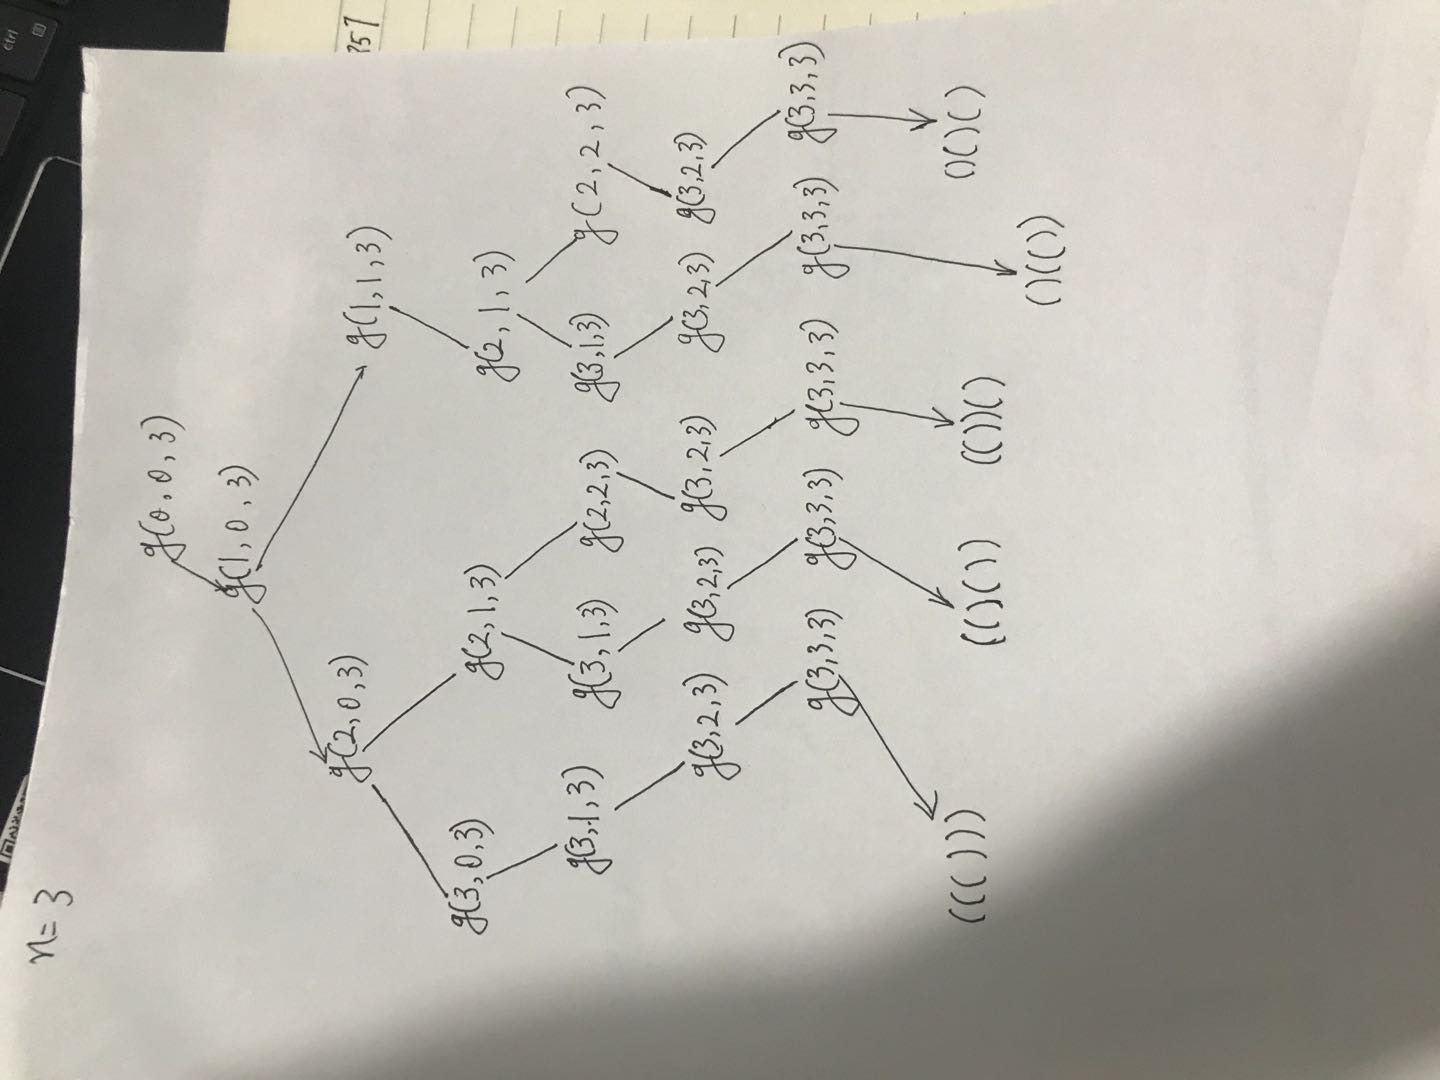 n=3
g(0,0,3)
g(1,0,3)
g(2,0,3) g(1,1,3)
g(3,0,3) g(2,1,3) g(2,1,3)
g(3,1,3) g(3,1,3) g(2,2,3) g(3,1,3) g(2,2,3)
g(3,2,3) g(3,2,3) g(3,2,3) g(3,2,3) g(3,2,3)
g(3,3,3) g(3,3,3) g(3,3,3) g(3,3,3) g(3,3,3)
((())) (()()) (())() ()()()
()(())
ctrl